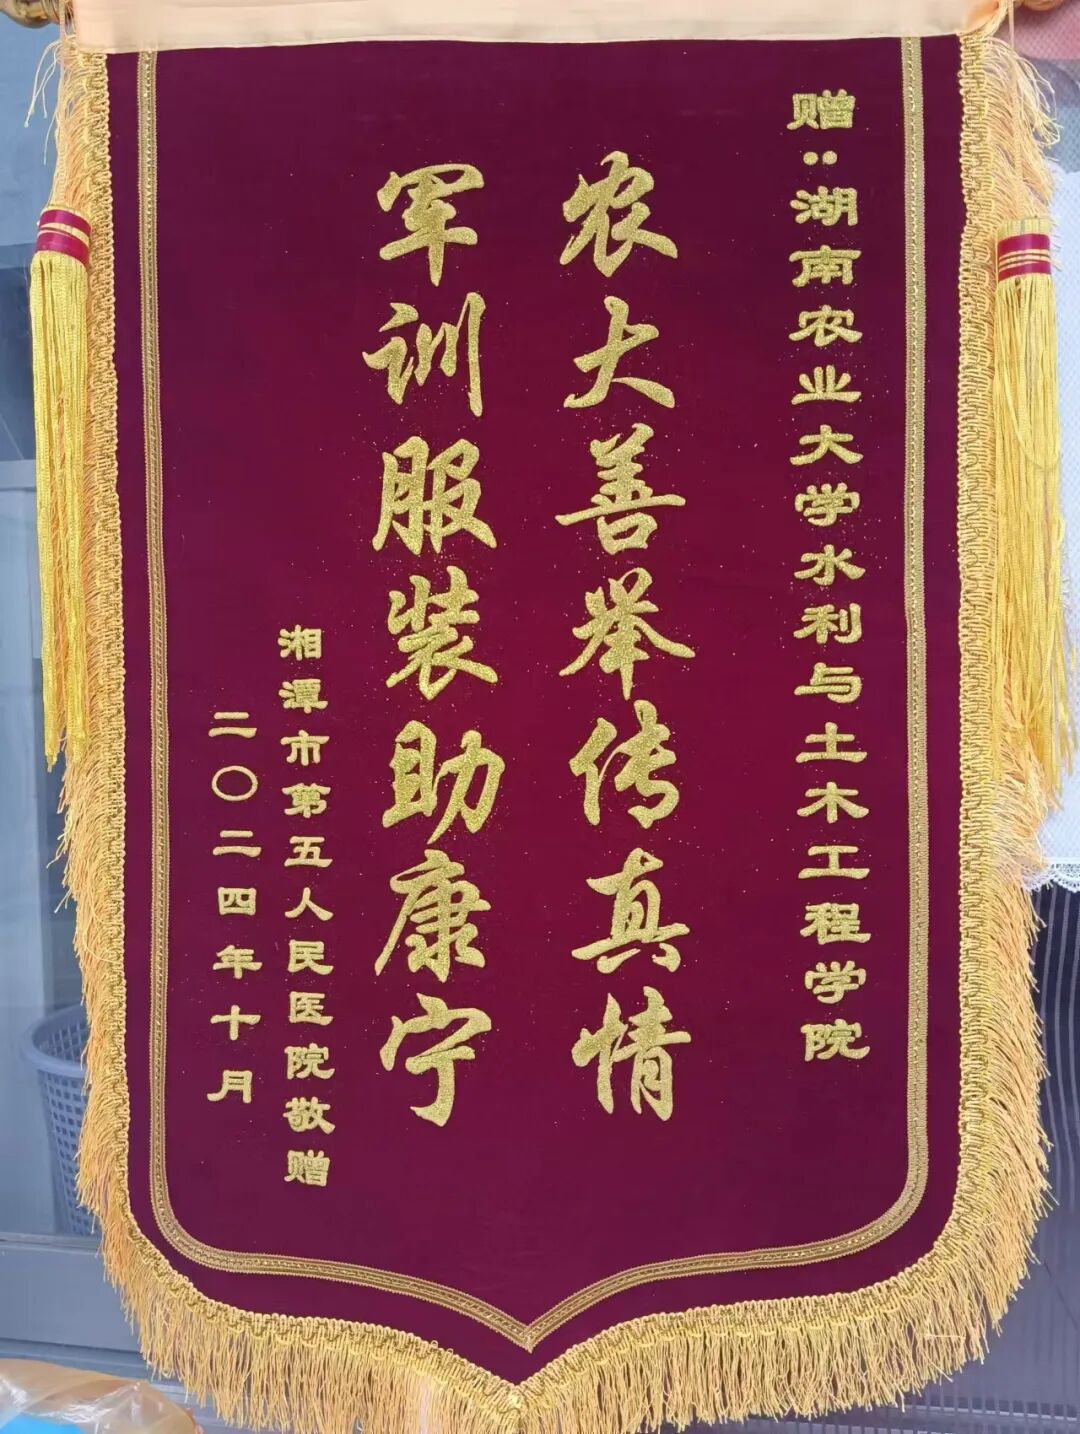 赠:湖南农业大学水利与土木工程学院
农大善举传真情
军训服装助康宁
湘潭市第五人民医院敬赠
二〇二四年十月